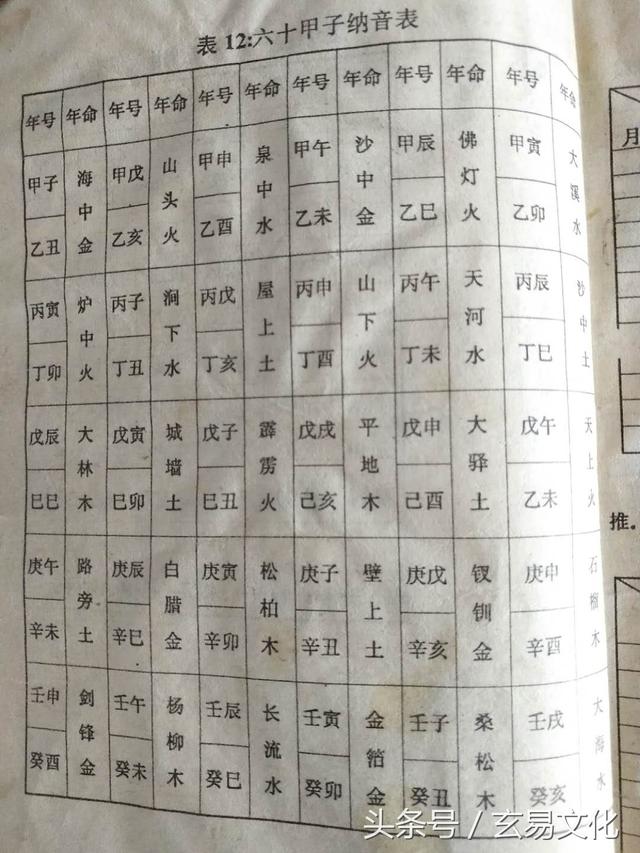 表12:六十甲子纳音表
年号 年命 年号 年命 年号 年命 年号 年命 年号 年命 年号 年命
甲子 海中金 甲戊 山头火 甲申 泉中水 甲午 沙中金 甲辰 佛灯火 甲寅 大溪水
乙丑 乙亥 乙酉 乙未 乙巳 乙卯
丙寅 炉中火 丙子 涧下水 丙戊 屋上土 丙申 山下火 丙午 天河水 丙辰 沙中土
丁卯 丁丑 丁亥 丁酉 丁未 丁巳
戊辰 大林木 戊寅 城墙土 戊子 霹雳火 戊戌 平地木 戊申 大驿土 戊午 天上火
巳巳 巳卯 巳丑 己亥 己酉 乙未
庚午 路旁土 庚辰 白腊金 庚寅 松柏木 庚子 壁上土 庚戊 钗钏金 庚申 石榴木
辛未 辛巳 辛卯 辛丑 辛亥 辛酉
壬申 剑锋金 壬午 杨柳木 壬辰 长流水 壬寅 金箔金 壬子 桑松木 壬戌 大海水
癸酉 癸未 癸巳 癸卯 癸丑 癸亥
月
推.
头条号 / 玄易文化